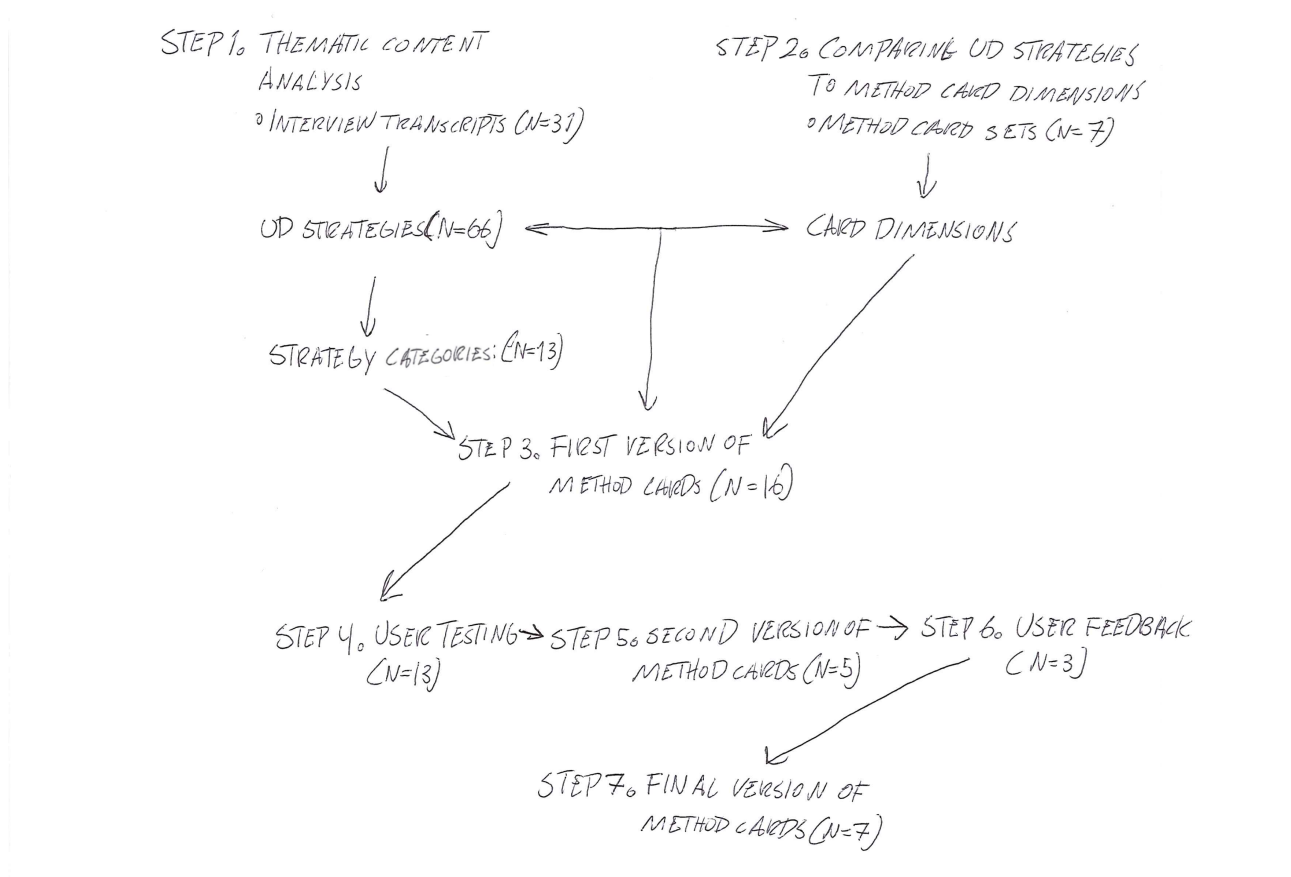 STEP 1. THEMATIC CONTENT
ANALYSIS
• INTERVIEW TRANSCRIPTS (N=31)
STEP 2. COMPARING UD STRATEGIES
TO METHOD CARD DIMENSIONS
• METHOD CARD SETS (N=7)
UD STRATEGIES (N=66)
CARD DIMENSIONS
STRATEGY CATEGORIES: (N=13)
STEP 3. FIRST VERSION OF
METHOD CARDS (N=16)
STEP 4. USER TESTING
(N=13)
STEP 5. SECOND VERSION OF
METHOD CARDS (N=5)
STEP 6. USER FEEDBACK
(N=3)
STEP 7. FINAL VERSION OF
METHOD CARDS (N=7)